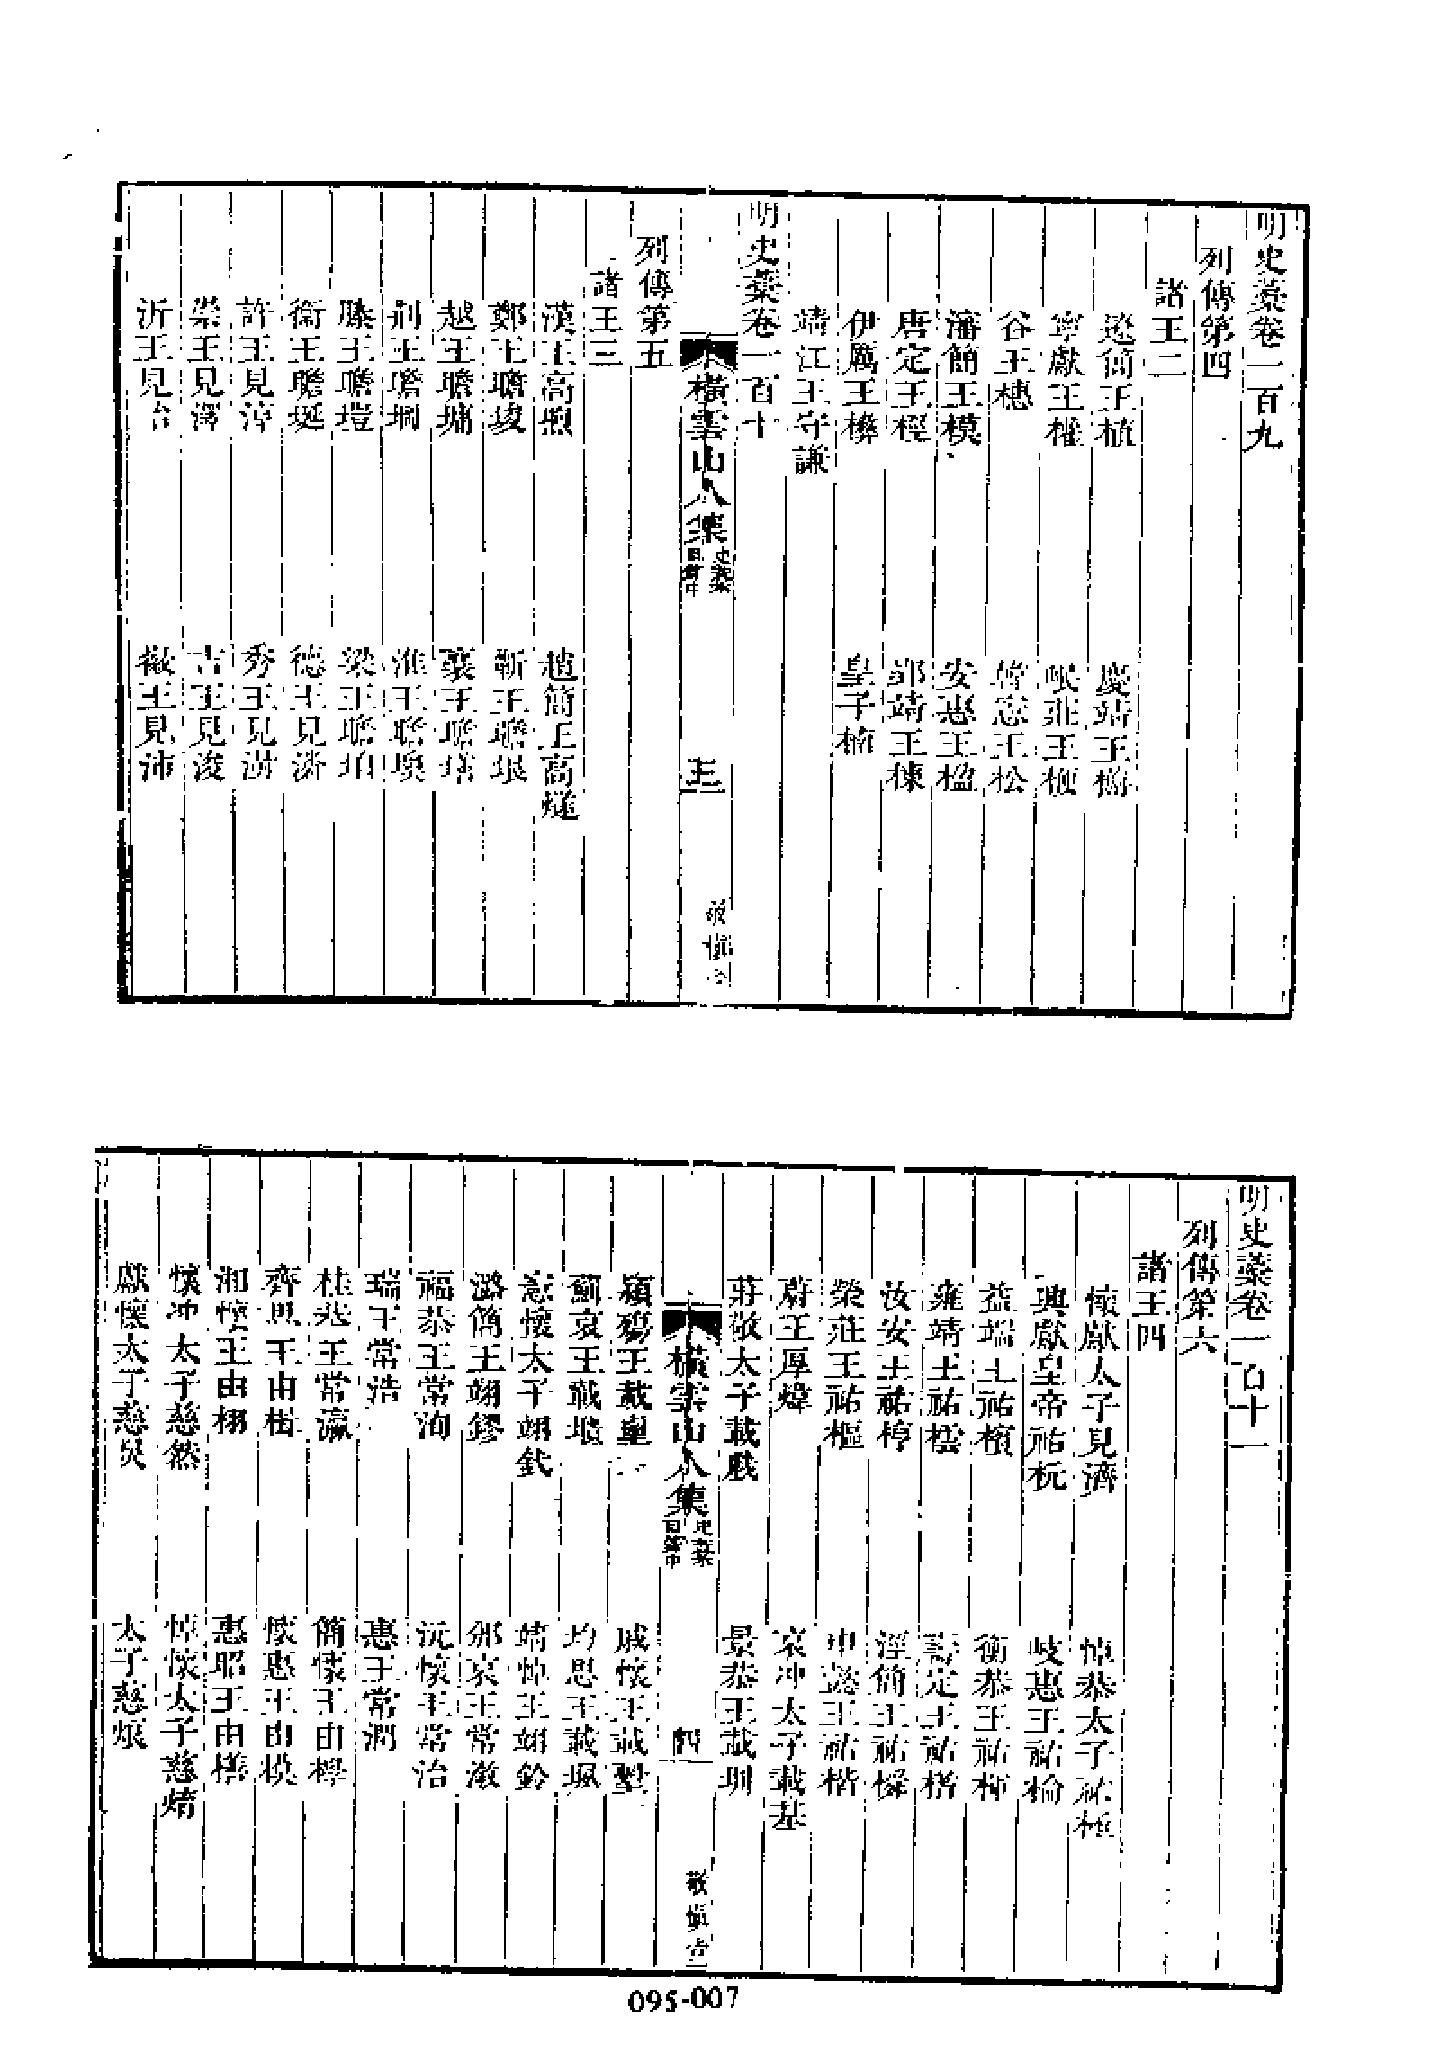 明史藁卷一百九
列傳第四
諸王二
遼簡王植 慶靖王㮵
寧獻王權 岷莊王楩
谷王橞 韓憲王松
瀋簡王模 安惠王楹
唐定王桱 郢靖王棟
伊厲王㰘 皇子楠
靖江王守謙
明史藁卷一百十
橫雲山人集 史藁 目錄中 三 敬慎堂
列傳第五
諸王三
漢王高煦 趙簡王高燧
鄭王瞻埈 蘄王瞻垠
越王瞻墉 襄王瞻墡
荆王瞻堈 淮王瞻墺
滕王瞻塏 梁王瞻垍
衞王瞻埏 德王見潾
許王見淳 秀王見澍
崇王見澤 吉王見浚
沂王見治 徽王見沛
明史藁卷一百十一
列傳第六
諸王四
懷獻太子見濟 悼恭太子祐極
興獻皇帝祐杬 岐惠王祐棆
益端王祐檳 衡恭王祐楎
雍靖王祐橒 壽定王祐榰
汝安王祐梈 涇簡王祐橓
榮莊王祐樞 申懿王祐楷
蔚王厚煒 哀冲太子載基
莊敬太子載壡 景恭王載圳
橫雲山人集 史藁 目錄中 四 敬慎堂
潁殤王載㙺 戚懷王載㙅
薊哀王載㙰 均思王載㙉
憲懷太子翊釴 靖悼王翊鈴
潞簡王翊鏐 邠哀王常溆
福恭王常洵 沅懷王常治
瑞王常浩 惠王常潤
桂恭王常瀛 簡懷王由㰒
齊思王由楫 懷惠王由模
湘懷王由栩 惠昭王由橏
懷冲太子慈然 悼懷太子慈焴
獻懷太子慈炅 太子慈烺
095-007